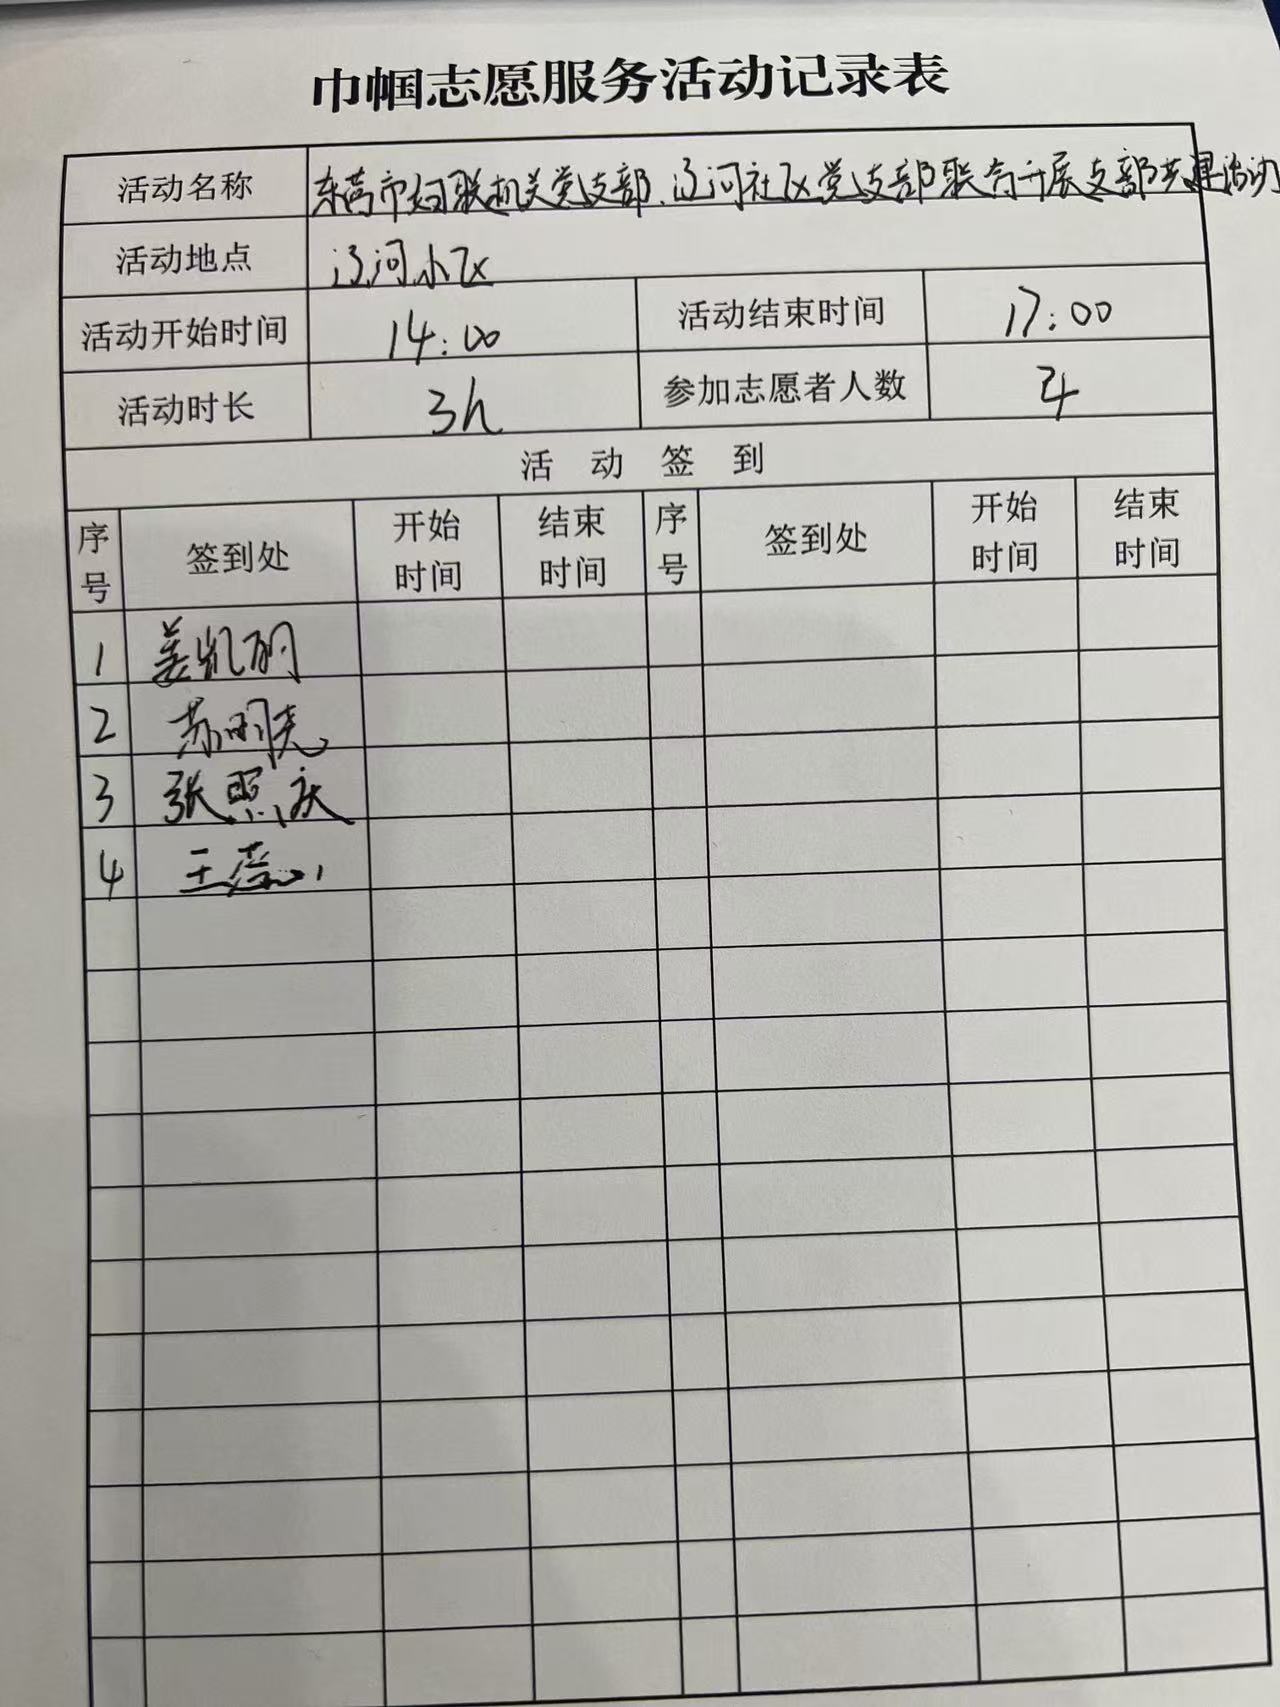 巾帼志愿服务活动记录表
活动名称 东营市妇联机关党支部、辽河社区党支部联合开展支部共建活动
活动地点 辽河小区
活动开始时间 14:00 活动结束时间 17:00
活动时长 3h 参加志愿者人数 4
活动签到
序号 签到处 开始时间 结束时间 序号 签到处 开始时间 结束时间
1 姜凯丽
2 苏明亮
3 张照庆
4 王蕊